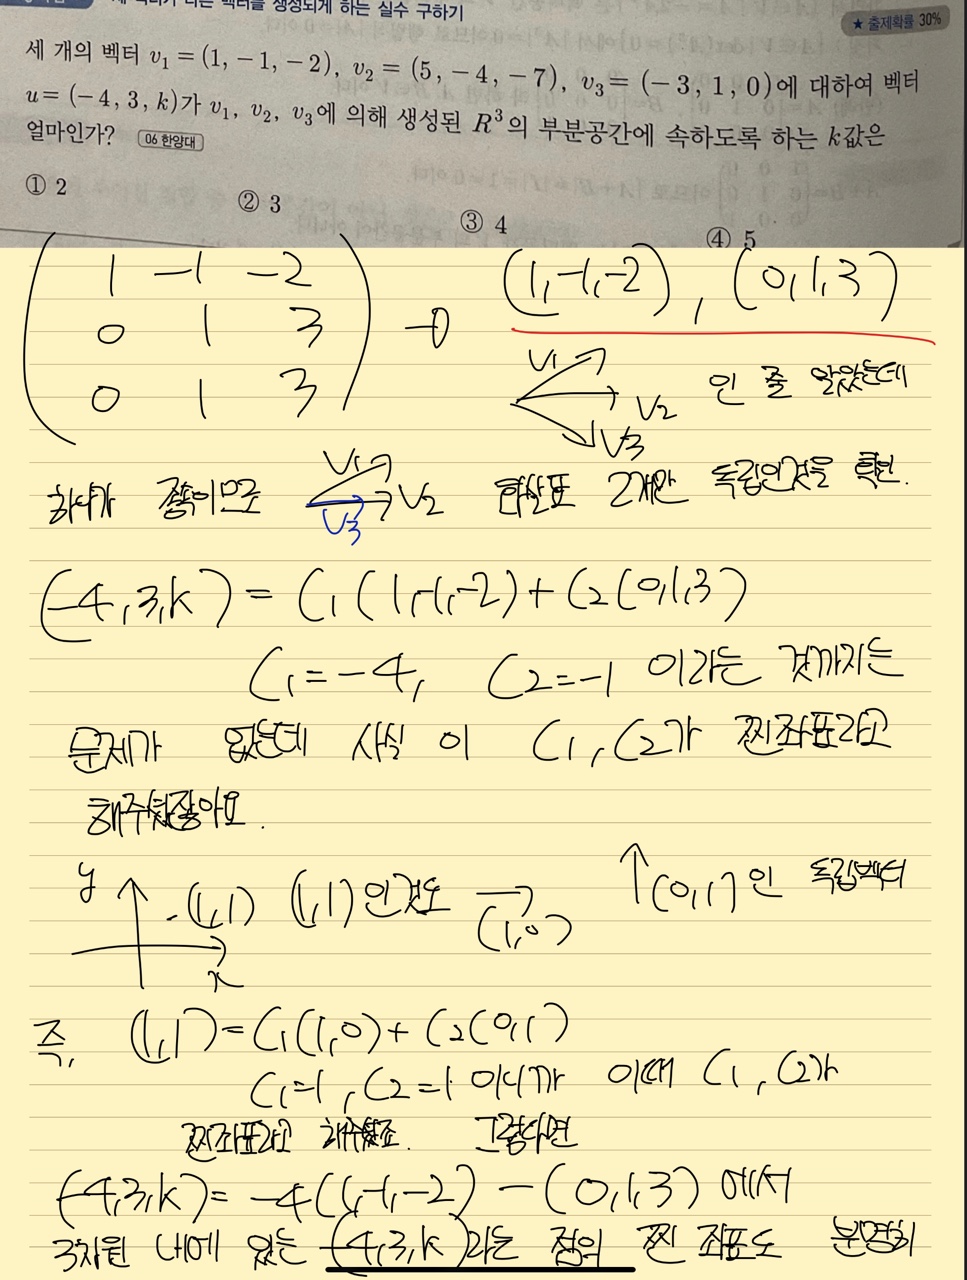 벡터를 생성되게 하는 실수 구하기
★ 출제확률 30%
세 개의 벡터 v₁ = (1, -1, -2), v₂ = (5, -4, -7), v₃ = (-3, 1, 0)에 대하여 벡터
u = (-4, 3, k)가 v₁, v₂, v₃에 의해 생성된 R³의 부분공간에 속하도록 하는 k값은
얼마인가? 06 한양대
① 2 ② 3 ③ 4 ④ 5
1 -1 -2
0 1 3
0 1 3
→ (1,-1,-2), (0,1,3)
V1 V2 V3 인 줄 알았는데
하나가 종속이므로 V1 V2 V3 화살표 2개만 독립인것을 확인.
(-4,3,k) = C1(1,-1,-2)+C2(0,1,3)
C1=-4, C2=-1 이라는 것까지는
문제가 없는데 사실 이 C1, C2가 찐좌표라고
해주셨잖아요.
y x ·(1,1) (1,1)인것도 → (1,0) ↑(0,1)인 독립벡터
즉, (1,1)=C1(1,0)+C2(0,1)
C1=1, C2=1 이니까 이때 C1, C2가
찐좌표라고 해주셨죠. 그렇다면
(-4,3,k)= -4(1,-1,-2) -(0,1,3) 에서
3차원 내에 있는 (-4,3,k)라는 점의 찐 좌표도 분명히